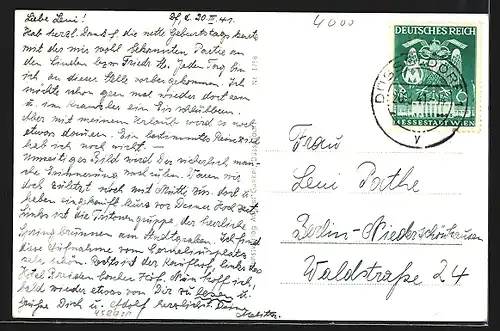 Df, d. 20. III. 41.
Liebe Leni!
Hab herzl. Dank f. die nette Geburtstagskarte
mit der mir wohl bekannten Partie an
den Linden bzw. Friedr. Str. Jeden Tag bin
ich an dieser Stelle vorbeigekommen. Ich
möchte schon gern mal wieder dort sein
u. im Kranzler ein Eis
Aber mit meinem Urlaub wird es noch
etwas dauern. Ein bestimmtes Reiseziel
hab ich noch nicht —
Umseitiges Bild wird Dir sicherlich man-
che Erinnerung wach rufen. Waren wir
doch zuletzt noch mit Mutti zus. dort u.
haben eingekauft kurz vor Deiner Hochzeit
Links ist die Tritonengruppe der herrliche
Springbrunnen am Stadtgraben. Ich find
diese Aufnahme vom Corneliusplatz
sehr schön. Rechts ist der Kaufhof, links das
Hotel Breidenbacher Hof. Nun hoff ich,
bald wieder etwas von Dir zu lesen u.
grüße Dich u. Adolf herzlichst Deine
4000
DEUTSCHES REICH
WIENER MESSE
MESSESTADT WIEN
DÜSSELDORF
Frau
Leni Pathe
Berlin-Niederschönhausen
Waldstraße 24